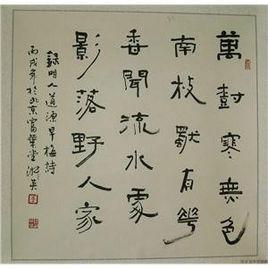 萬尌寒無色
南枝獨有華
香聞流水處
影落野人家
錄明人道源早梅詩
丙戌年於北京富華堂